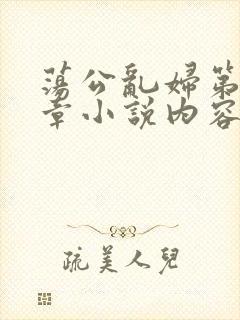 蕩公亂婦第
章小說内容
疏美人兒